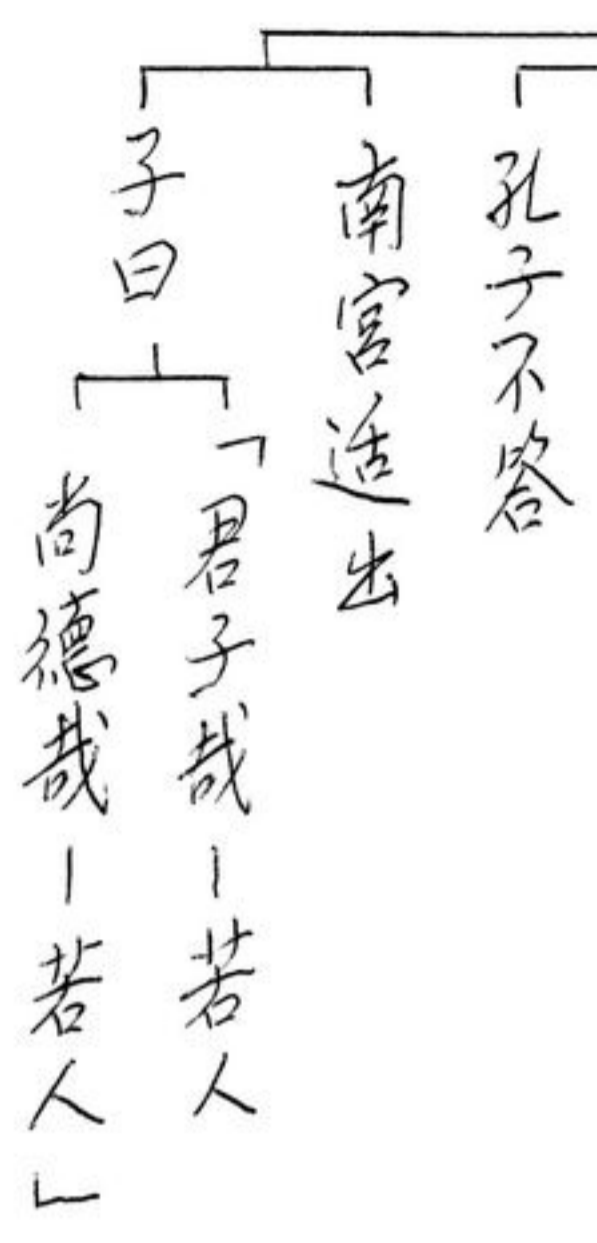 孔子不答
南宮适出
子曰
「君子哉｜若人
尚德哉｜若人」